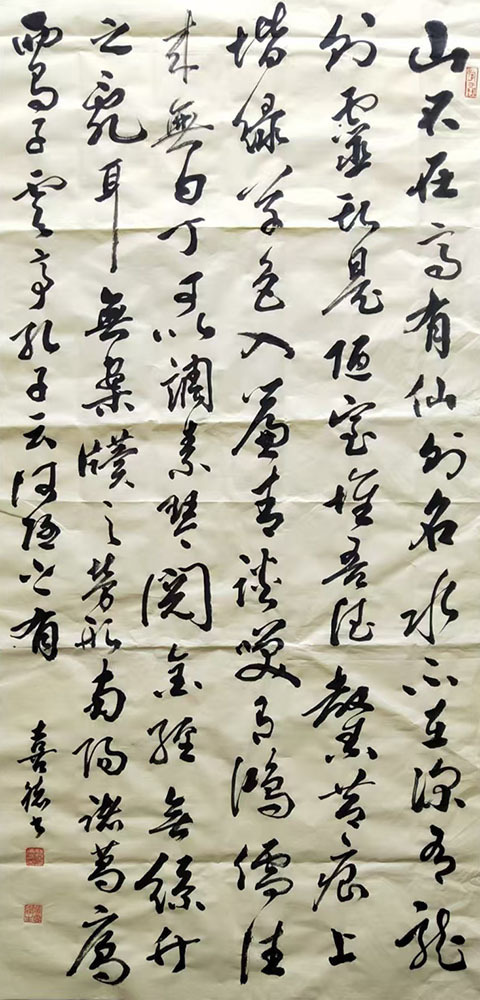 山不在高有仙则名水不在深有龍
则靈斯是陋室惟吾德馨苔痕上
堦緑草色入簾青談笑有鴻儒往
来無白丁可以調素琴閲金經無絲竹
之亂耳無案牘之勞形南陽諸葛廬
西蜀子雲亭孔子云何陋之有
喜德书